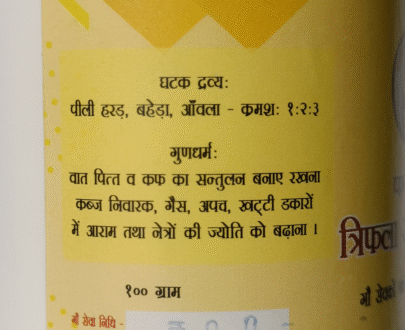 घटक द्रव्य:
पीली हरड़, बहेड़ा, आँवला - क्रमश: १:२:३
गुणधर्म:
वात पित्त व कफ का सन्तुलन बनाए रखना
कब्ज निवारक, गैस, अपच, खट्टी डकारों
में आराम तथा नेत्रों की ज्योति को बढ़ाना ।
त्रिफला
१०० ग्राम
गौ सेवा निधि -